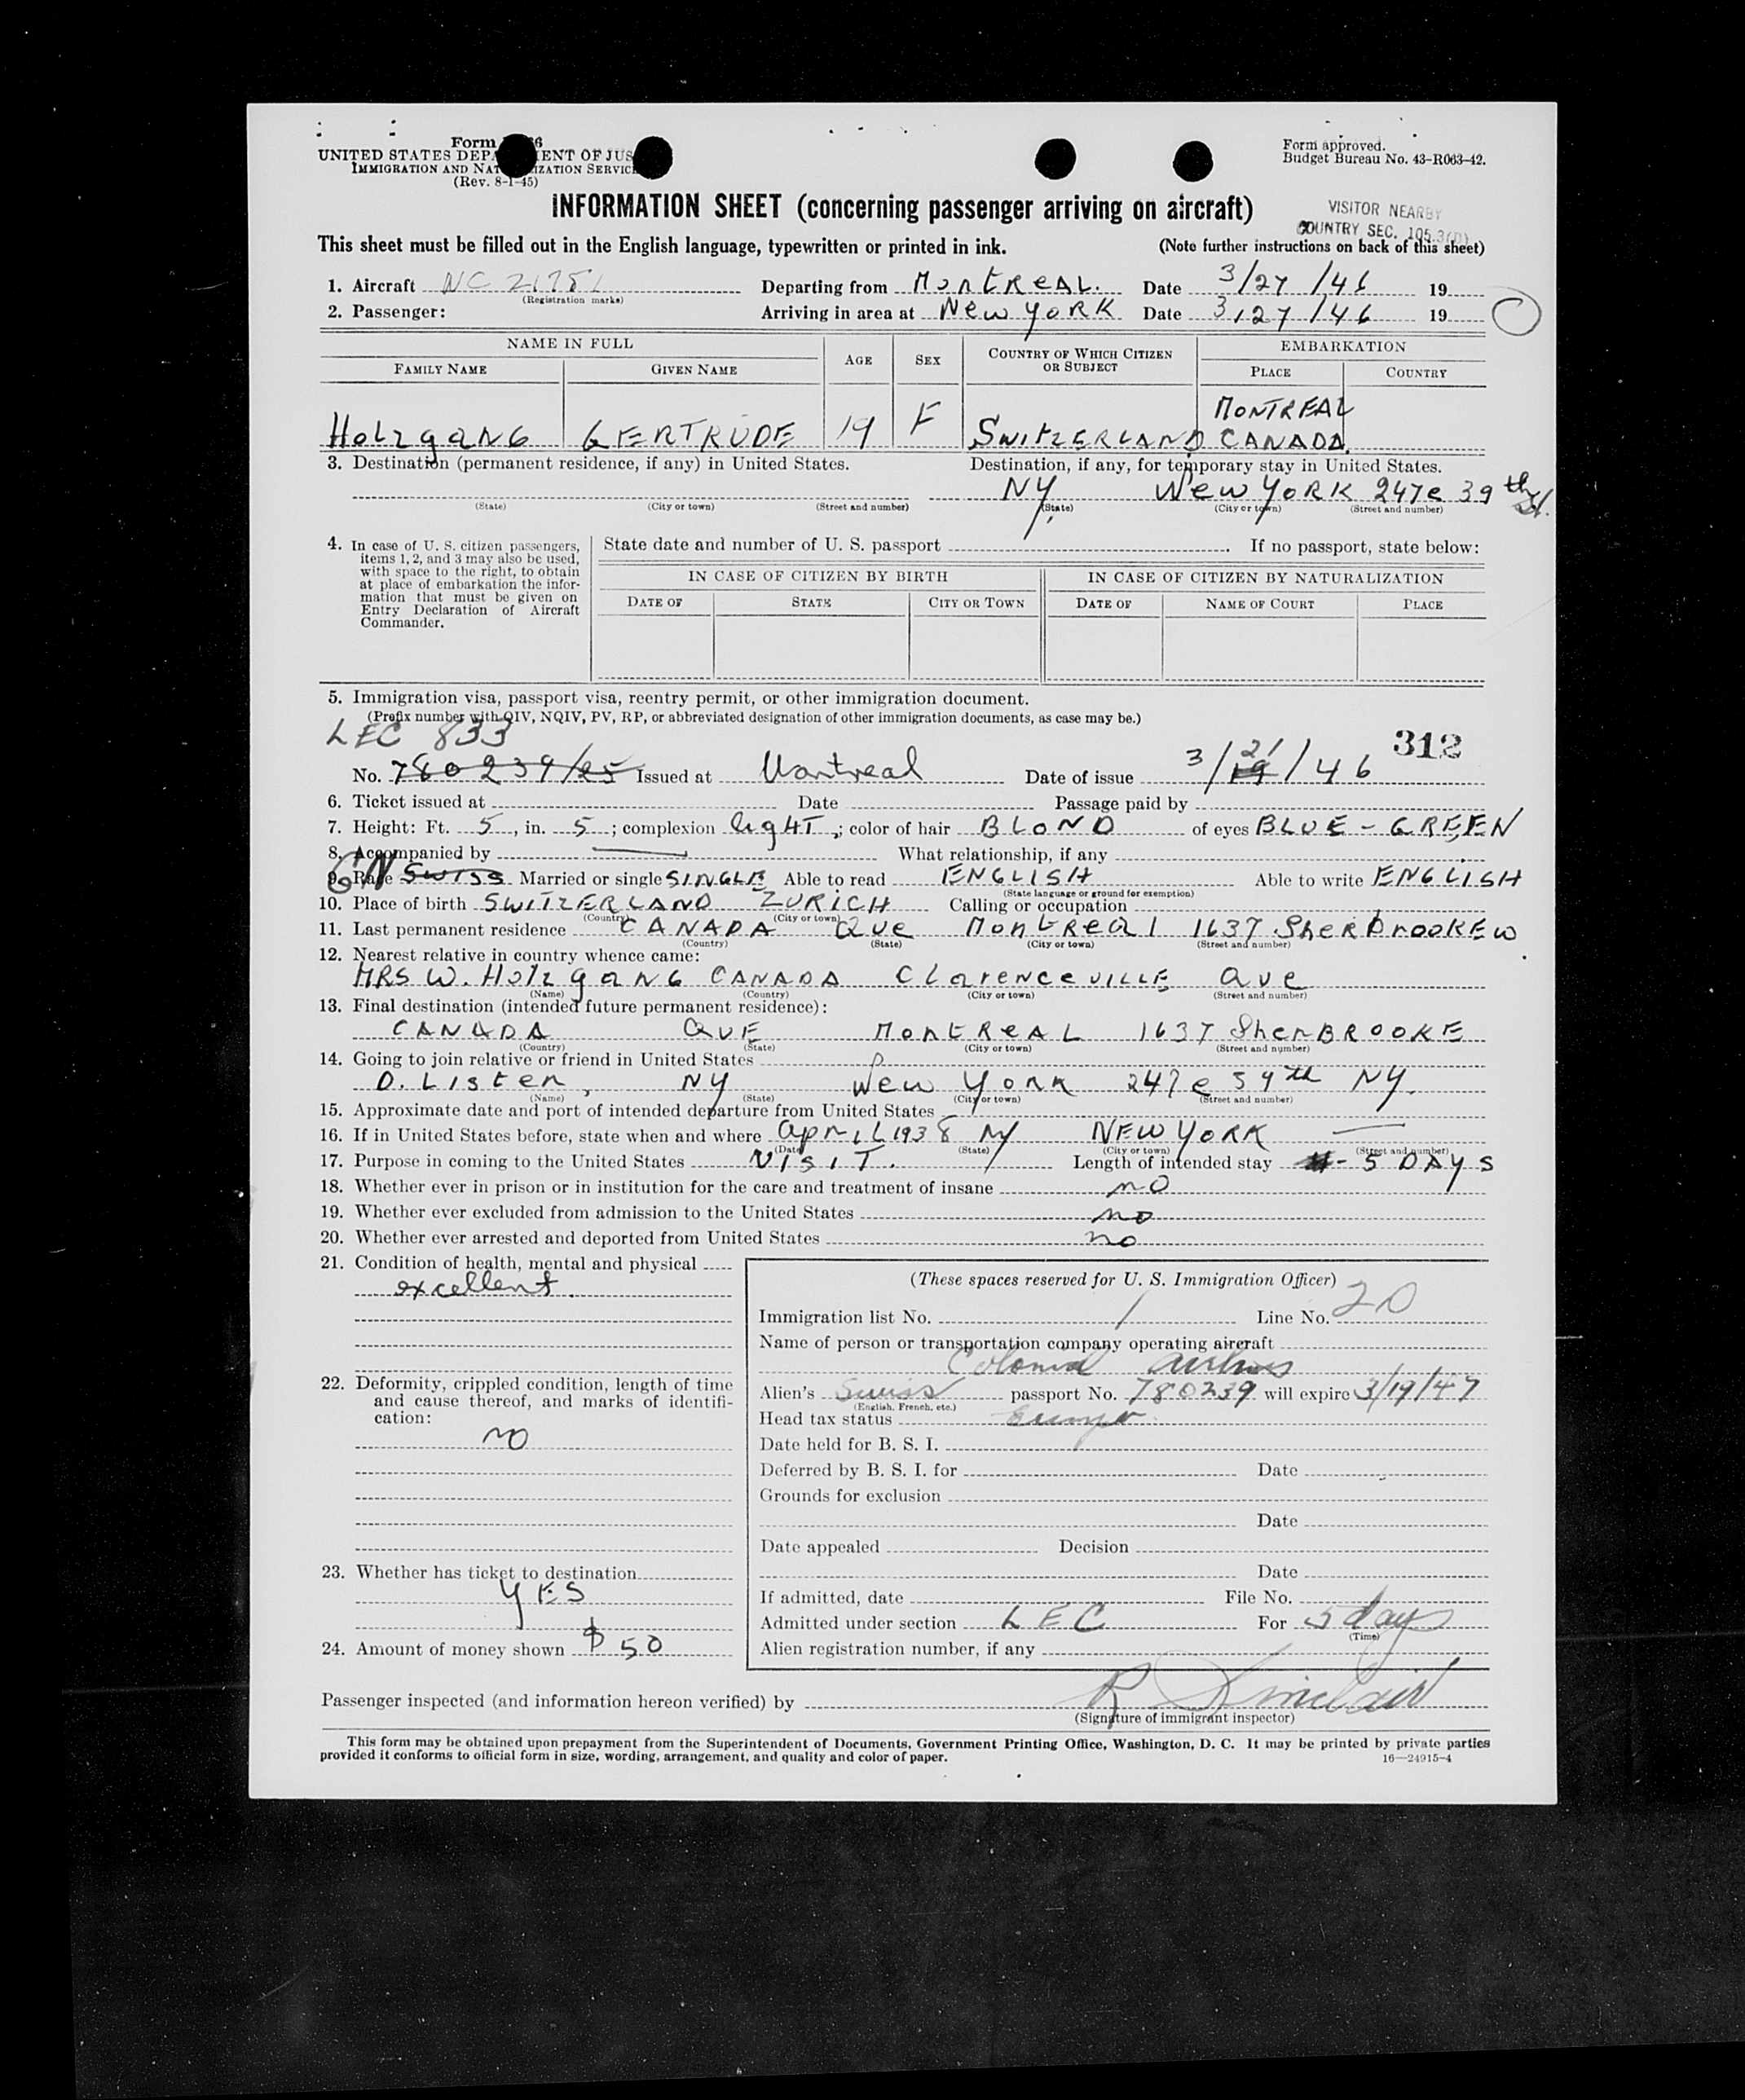 Form
UNITED STATES DEPARTMENT OF JUSTICE
IMMIGRATION AND NATURALIZATION SERVICE
(Rev. 8-1-45)
Form approved.
Budget Bureau No. 43-R063-42.
INFORMATION SHEET (concerning passenger arriving on aircraft)
VISITOR NEARBY
COUNTRY SEC. 105.3
This sheet must be filled out in the English language, typewritten or printed in ink. (Note further instructions on back of this sheet)
1. Aircraft NC 21751 Departing from MontReAL. Date 3/27/46 19
(Registration marks)
2. Passenger: Arriving in area at New YoRK Date 3/27/46 19
NAME IN FULL AGE SEX COUNTRY OF WHICH CITIZEN OR SUBJECT EMBARKATION
FAMILY NAME GIVEN NAME PLACE COUNTRY
HolzgANG GERTRUDE 19 F SWITZERLAND MONTREAL CANADA.
3. Destination (permanent residence, if any) in United States. Destination, if any, for temporary stay in United States.
NY New YoRK 247e 39th St.
(State) (City or town) (Street and number) (State) (City or town) (Street and number)
4. In case of U. S. citizen passengers, items 1, 2, and 3 may also be used, with space to the right, to obtain at place of embarkation the information that must be given on Entry Declaration of Aircraft Commander.
State date and number of U. S. passport . If no passport, state below:
IN CASE OF CITIZEN BY BIRTH IN CASE OF CITIZEN BY NATURALIZATION
DATE OF STATE CITY OR TOWN DATE OF NAME OF COURT PLACE
5. Immigration visa, passport visa, reentry permit, or other immigration document.
(Prefix number with QIV, NQIV, PV, RP, or abbreviated designation of other immigration documents, as case may be.)
LEC 833
312
No. 780239/25 Issued at Montreal Date of issue 3/21/46
6. Ticket issued at Date Passage paid by
7. Height: Ft. 5, in. 5; complexion ligHT; color of hair BLOND of eyes BLUE-GREEN
8. Accompanied by What relationship, if any
9. Race SWISS Married or single SINGLE Able to read ENGLISH Able to write ENGLISH
(State language or ground for exemption)
10. Place of birth SWITZERLAND ZURICH Calling or occupation
(Country) (City or town)
11. Last permanent residence CANADA Que MontReal 1637 SheRbrooKe W
(Country) (State) (City or town) (Street and number)
12. Nearest relative in country whence came:
MRS W. HolzgANG CANADA ClarenceVILLE Que
(Name) (Country) (City or town) (Street and number)
13. Final destination (intended future permanent residence):
CANADA QUE MontReAL 1637 SherBROOKE
(Country) (State) (City or town) (Street and number)
14. Going to join relative or friend in United States
D. Listen, NY New York 247e 59th NY.
(Name) (State) (City or town) (Street and number)
15. Approximate date and port of intended departure from United States
16. If in United States before, state when and where ApriL 1938 NY NEW YORK
(Date) (State) (City or town) (Street and number)
17. Purpose in coming to the United States VISIT. Length of intended stay 5 DAYS
18. Whether ever in prison or in institution for the care and treatment of insane no
19. Whether ever excluded from admission to the United States no
20. Whether ever arrested and deported from United States no
21. Condition of health, mental and physical
excellent.
22. Deformity, crippled condition, length of time and cause thereof, and marks of identification:
no
23. Whether has ticket to destination
YES
24. Amount of money shown $50
(These spaces reserved for U. S. Immigration Officer)
Immigration list No. 1 Line No. 20
Name of person or transportation company operating aircraft
Colonial Airlines
Alien's Swiss passport No. 780239 will expire 3/19/47
(English, French, etc.)
Head tax status Exempt
Date held for B. S. I.
Deferred by B. S. I. for Date
Grounds for exclusion
Date
Date appealed Decision
Date
If admitted, date File No.
Admitted under section LEC For 5 days
(Time)
Alien registration number, if any
Passenger inspected (and information hereon verified) by R Sinclair
(Signature of immigrant inspector)
This form may be obtained upon prepayment from the Superintendent of Documents, Government Printing Office, Washington, D. C. It may be printed by private parties
provided it conforms to official form in size, wording, arrangement, and quality and color of paper. 16—24915-4